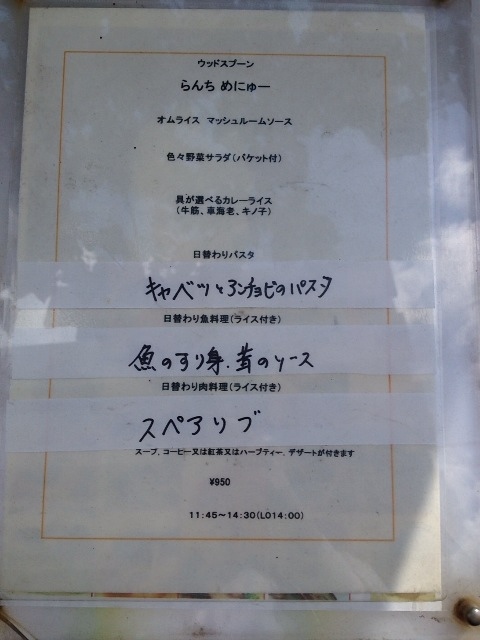 ウッドスプーン
らんち めにゅー
オムライス マッシュルームソース
色々野菜サラダ(バケット付)
具が選べるカレーライス
(牛筋、車海老、キノ子)
日替わりパスタ
キャベツとアンチョビのパスタ
日替わり魚料理(ライス付き)
魚のすり身、茸のソース
日替わり肉料理(ライス付き)
スペアリブ
スープ、コーヒー又は紅茶又はハーブティー、デザートが付きます
¥950
11:45~14:30(LO14:00)